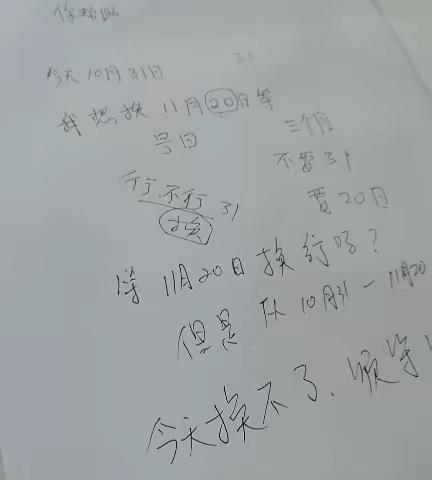 31
今天10月31日
我想换11月20日等
号日
三个月
不要31
行不行
31
要20日
换
等11月20日换行吗?
但是从10月31-11月20
今天换不了、